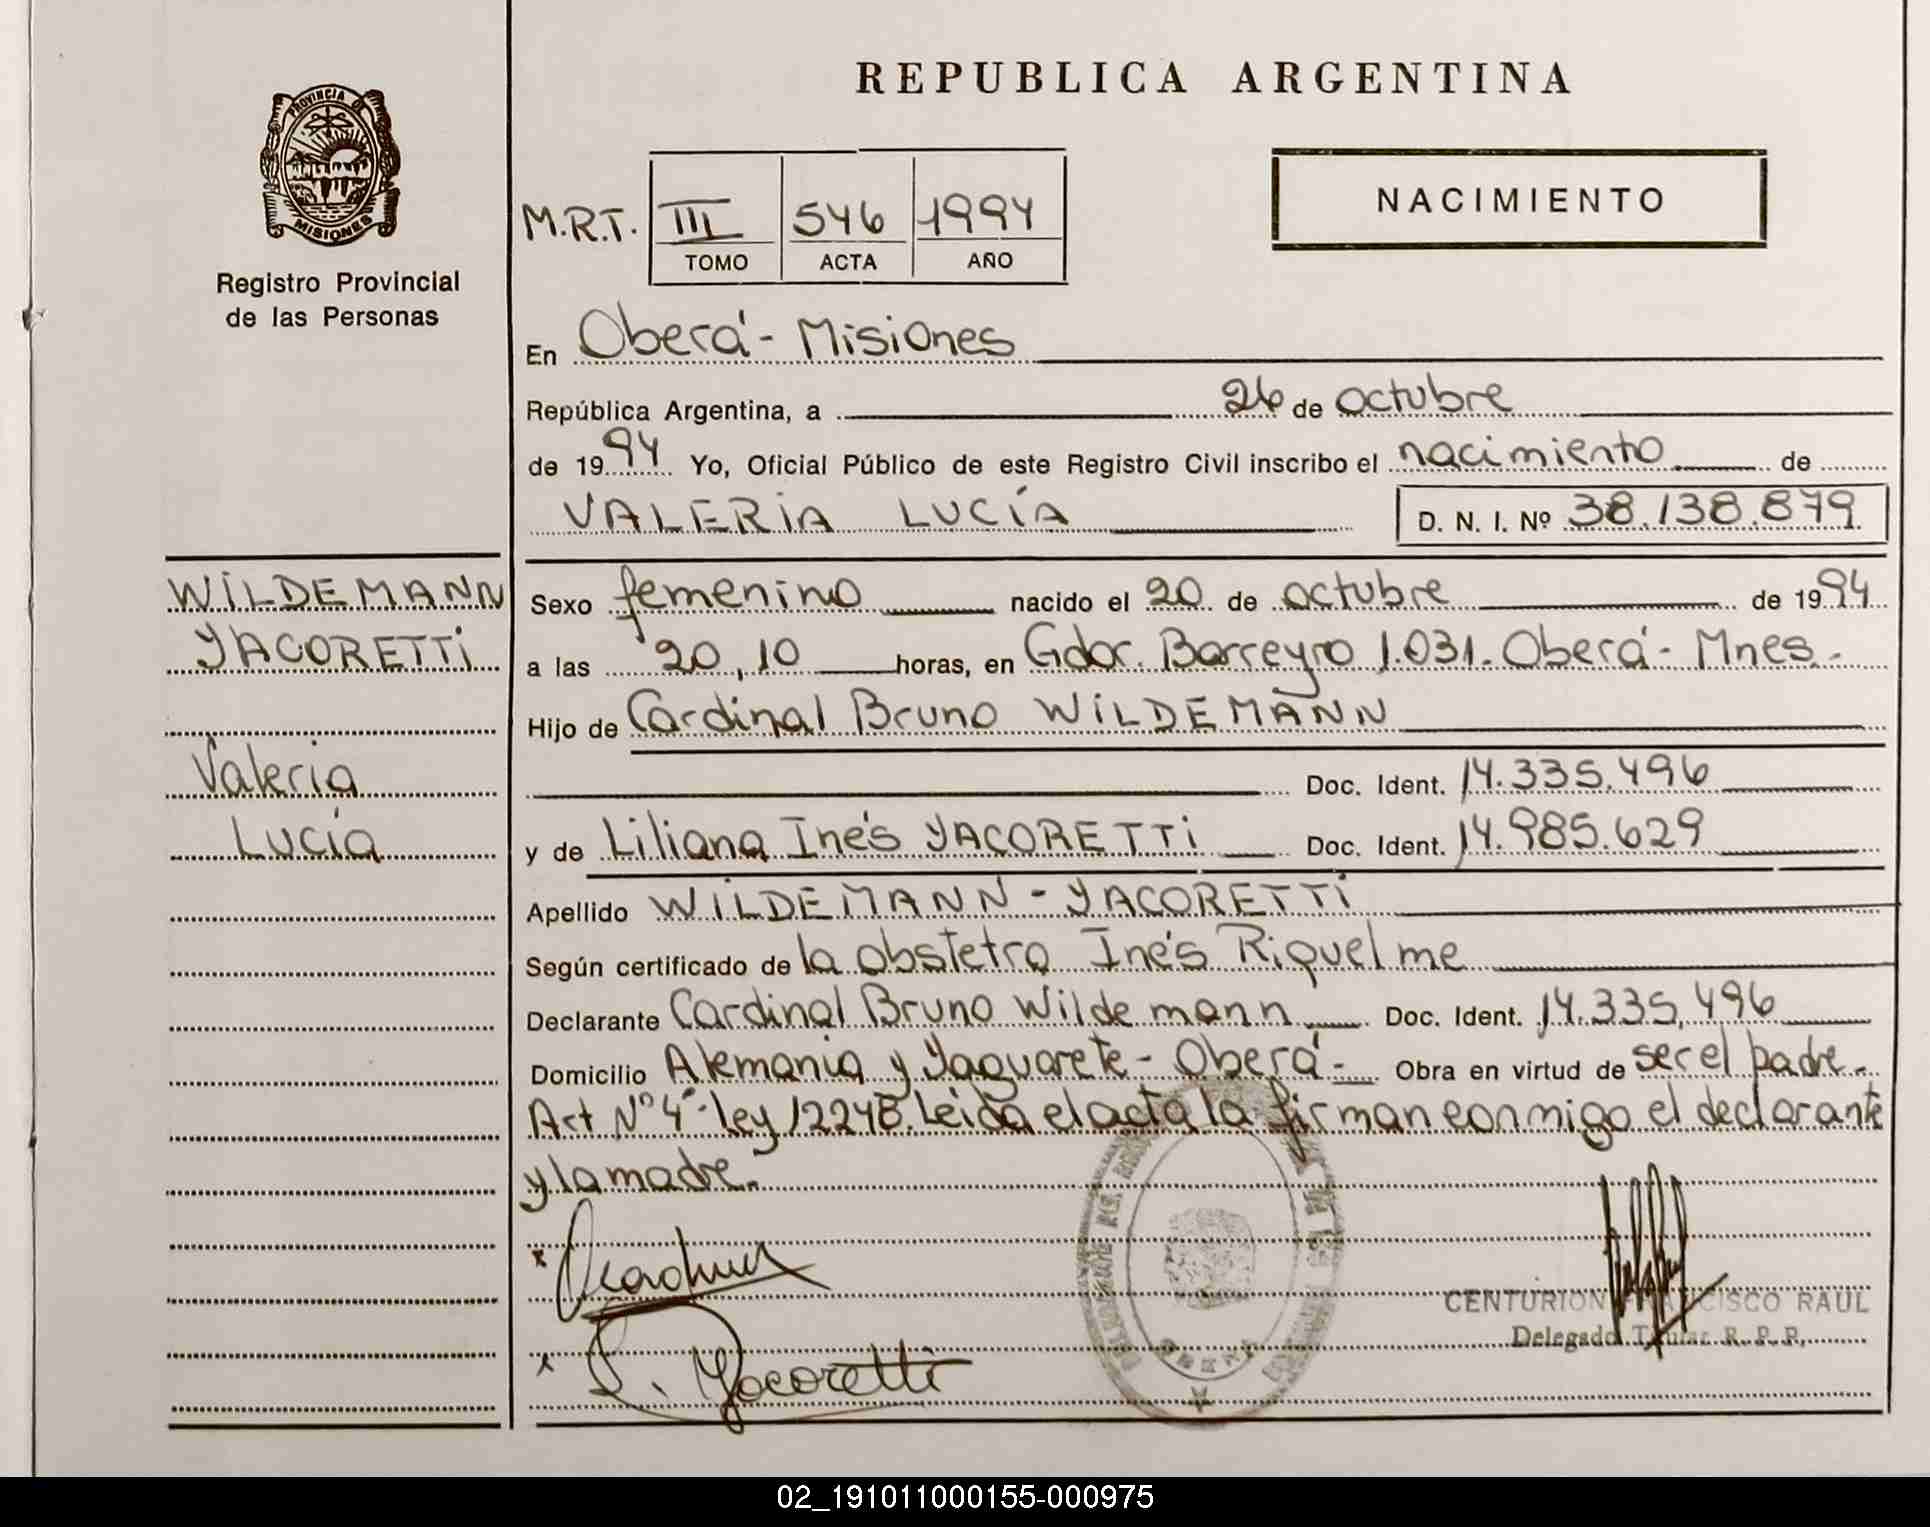 REPUBLICA ARGENTINA
PROVINCIA DE
MISIONES
Registro Provincial
de las Personas
M.R.T. III 546 1994
TOMO ACTA AÑO
NACIMIENTO
En Oberá - Misiones
República Argentina, a 26 de octubre
de 1994 Yo, Oficial Público de este Registro Civil inscribo el nacimiento de
VALERIA LUCÍA D. N. I. Nº 38.138.879
WILDEMANN
YACORETTI
Valeria
Lucía
Sexo femenino nacido el 20 de octubre de 1994
a las 20,10 horas, en Gdor. Barreyro 1.031. Oberá - Mnes.-
Hijo de Cardinal Bruno WILDEMANN
Doc. Ident. 14.335.496
y de Liliana Inés YACORETTI Doc. Ident. 14.985.629
Apellido WILDEMANN - YACORETTI
Según certificado de la obstetra Inés Riquelme
Declarante Cardinal Bruno Wildemann Doc. Ident. 14.335,496
Domicilio Alemania y Yaguarete - Oberá - Obra en virtud de ser el padre.-
Art Nº 4º- ley 12248. Leida el acta la firman conmigo el declarante
y la madre.-
x
x L. Yacoretti
OBERA
CENTURION FRANCISCO RAUL
Delegado Titular R. P. P.
02_191011000155-000975